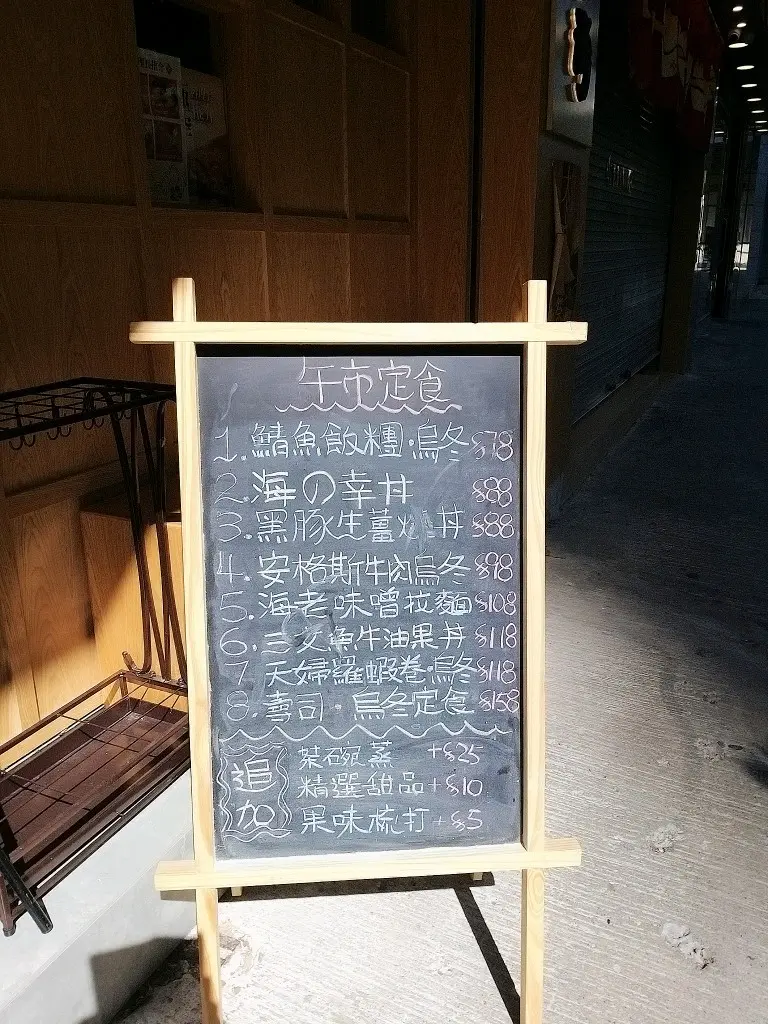 午市定食
1. 鯖魚飯糰·烏冬 $78
2. 海の幸丼 $88
3. 黑豚生薑燒丼 $88
4. 安格斯牛肉烏冬 $98
5. 海老味噌拉麵 $108
6. 三文魚牛油果丼 $118
7. 天婦羅蝦卷·烏冬 $118
8. 壽司·烏冬定食 $158
追加
茶碗蒸 +$25
精選甜品 +$10
果味梳打 +$5